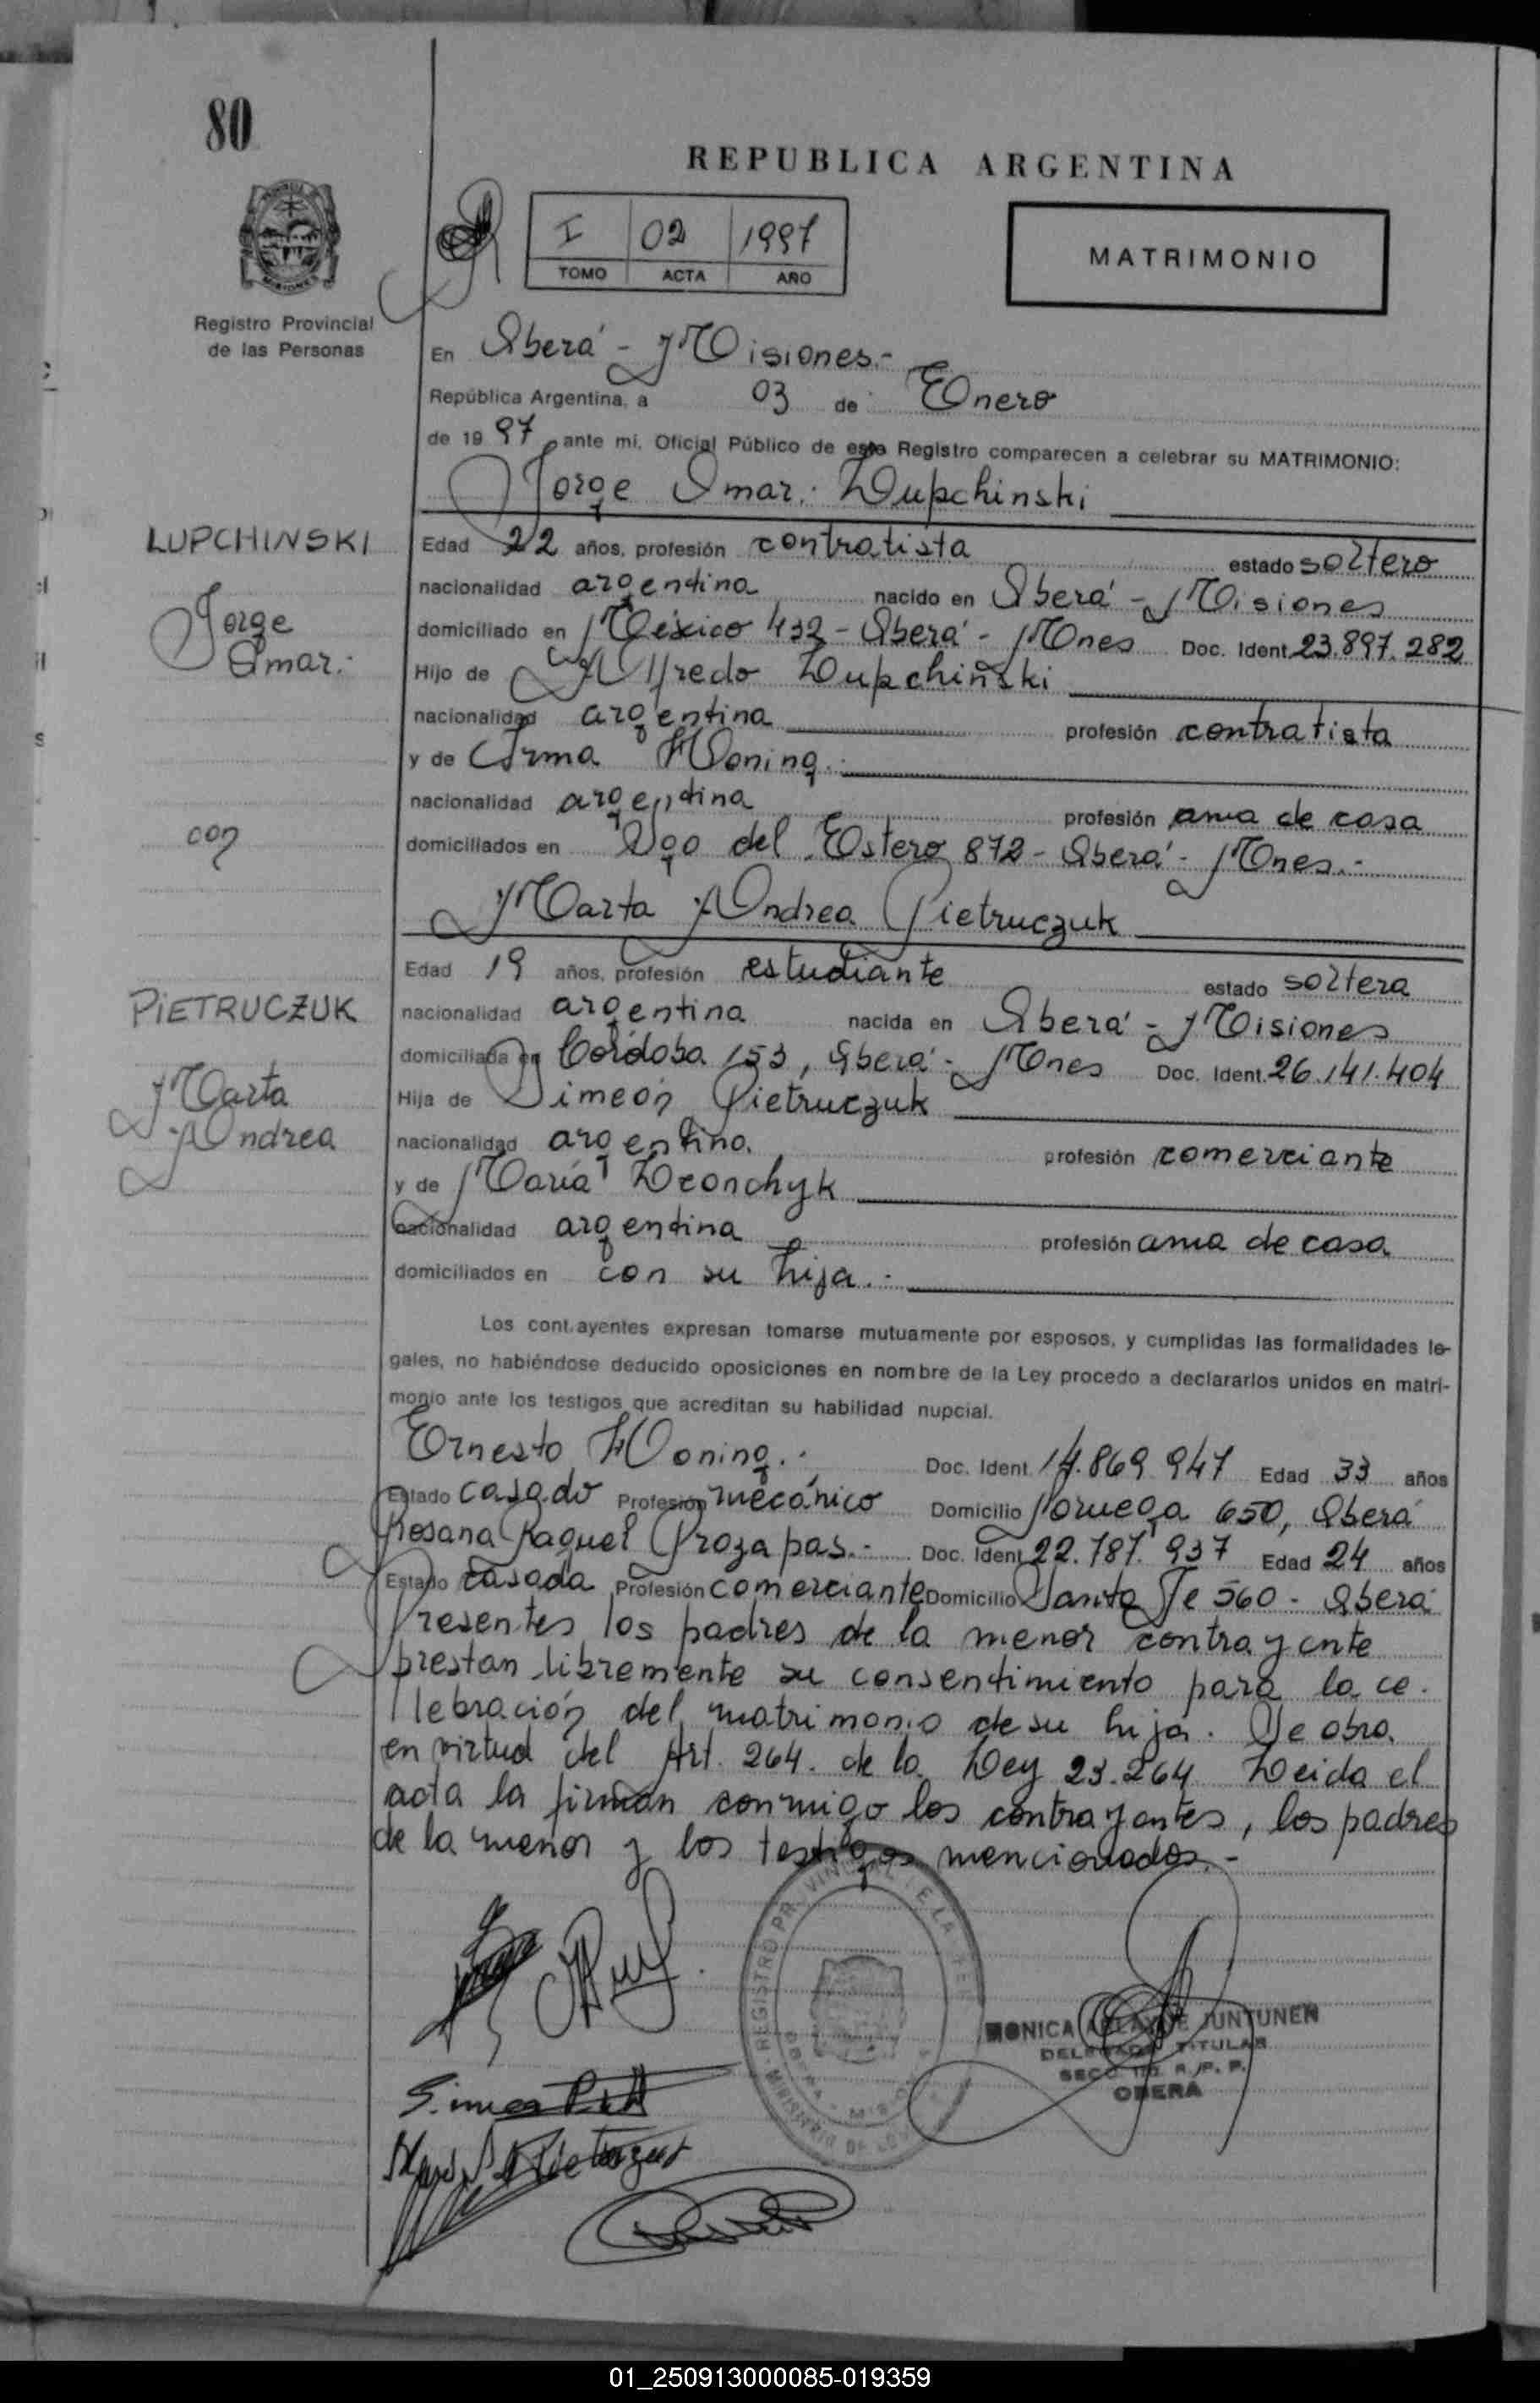 80
REPUBLICA ARGENTINA
I 02 1997
TOMO ACTA AÑO
MATRIMONIO
Registro Provincial
de las Personas
En Oberá - Misiones.-
República Argentina, a 03 de Enero
de 1997 ante mi, Oficial Público de este Registro comparecen a celebrar su MATRIMONIO:
Jorge Omar.- Lupchinski
LUPCHINSKI
Jorge
Omar.-
Edad 22 años, profesión contratista estado soltero
nacionalidad argentina nacido en Oberá - Misiones
domiciliado en México 432 - Oberá - Mnes Doc. Ident. 23.897.282
Hijo de Alfredo Lupchinski
nacionalidad argentina profesión contratista
y de Irma Honing.-
nacionalidad argentina profesión ama de casa
con
domiciliados en Sgo del Estero 872 - Oberá - Mnes.-
Marta Andrea Pietruczuk
Edad 19 años, profesión estudiante estado soltera
PIETRUCZUK
Marta
Andrea
nacionalidad argentina nacida en Oberá - Misiones
domiciliada en Córdoba 153, Oberá - Mnes Doc. Ident. 26.141.404
Hija de Simeón Pietruczuk
nacionalidad argentina profesión comerciante
y de María Dronchyk
nacionalidad argentina profesión ama de casa
domiciliados en con su hija.-
Los contrayentes expresan tomarse mutuamente por esposos, y cumplidas las formalidades le-
gales, no habiéndose deducido oposiciones en nombre de la Ley procedo a declararlos unidos en matri-
monio ante los testigos que acreditan su habilidad nupcial.
Ernesto Honing.- Doc. Ident. 14.869.947 Edad 33 años
Estado casado Profesión mecánico Domicilio Noruega 650, Oberá
Rosana Raquel Prozapas.- Doc. Ident. 22.787.937 Edad 24 años
Estado casada Profesión comerciante Domicilio Santa Fe 560 - Oberá
Presentes los padres de la menor contrayente
prestan libremente su consentimiento para la ce-
lebración del matrimonio de su hija. Se obra
en virtud del Art. 264. de la Ley 23.264 Leida el
acta la firman conmigo los contrayentes, los padres
de la menor y los testigos mencionados.-
MONICA DE JUNTUNEN
DELEGADA TITULAR
OBERA
01_250913000085-019359